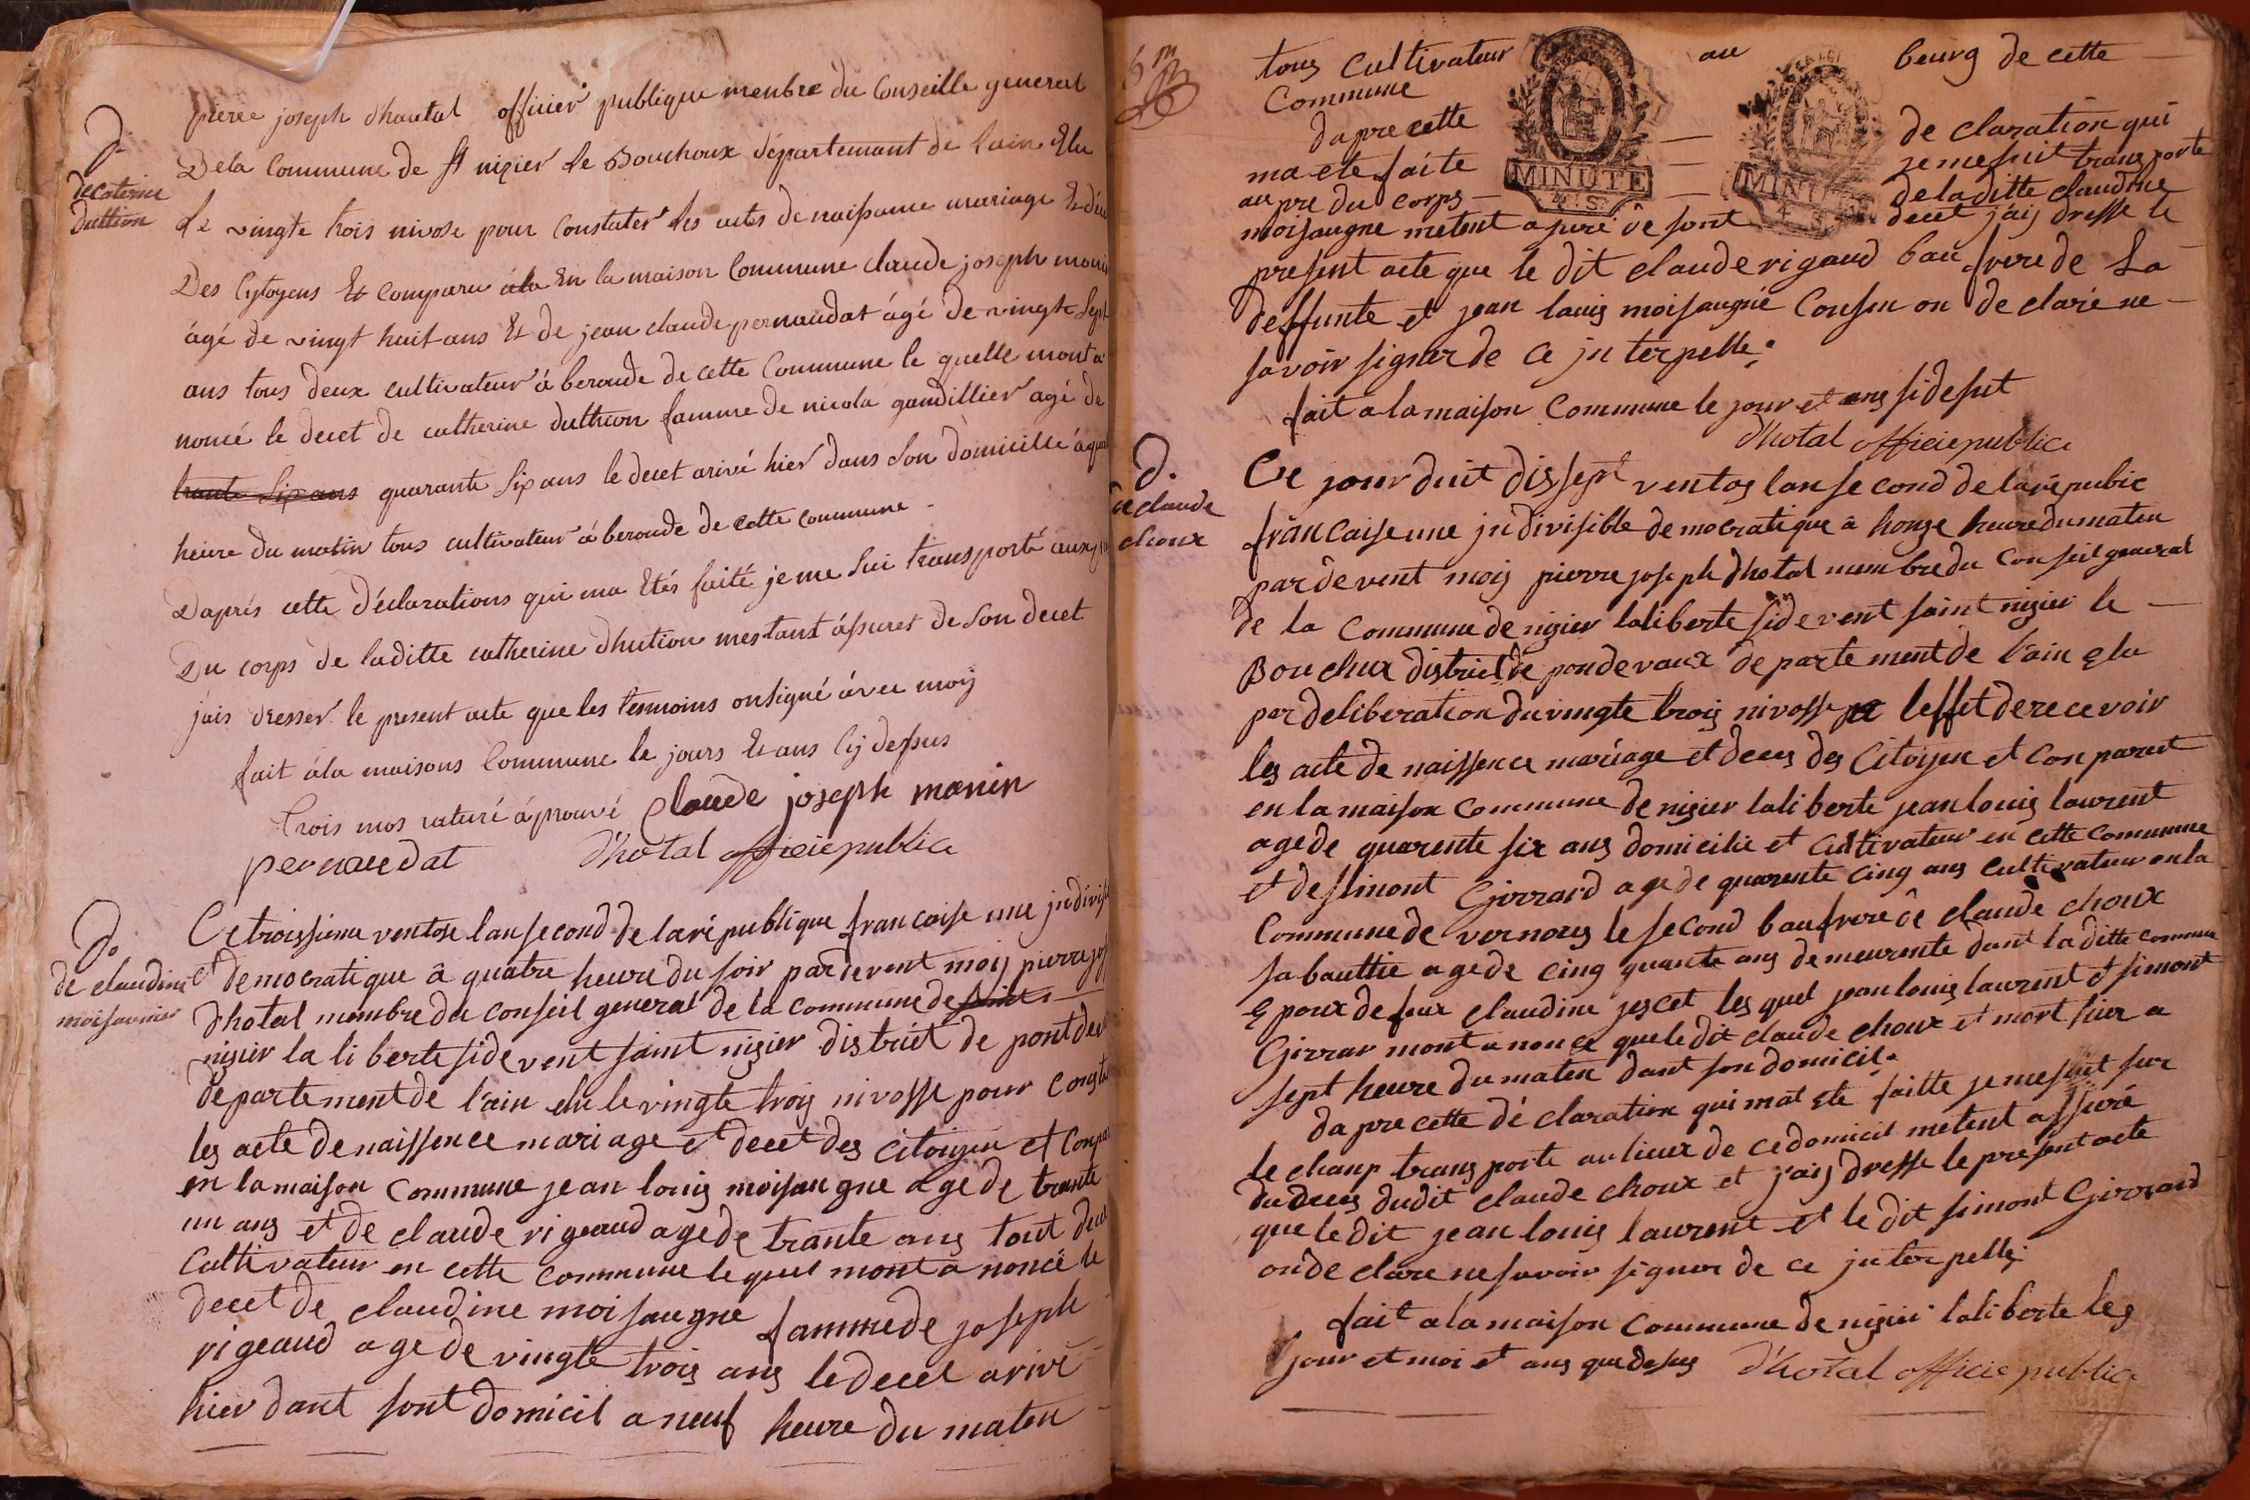 pierre joseph dhautal officier publique menbre du Conseille general
D.
de caterine
duttion
Dela Commune de St nizier le Bouchoux département de lain Elu
le vingte trois nivose pour Constater les actes de naissance mariage Et
Des Cytoyens Et Comparu en la maison Commune claude joseph
âgé de vingt huit ans Et de jean claude pernaudat âgé de vingte
ans tous deux cultivateur à beroude de cette Commune le quelle mont a
noncé le decet de catherine duthion famme de nicola gandillier agé de
trante six ans quarante six ans le decet arivé hier dans son domicille à
heure du matin tous cultivateur à beroude de cette commune
D'après cette déclarations qui ma Etés faité je me sui transporté
Du corps de laditte catherine dhution mestant assurer de son decet
jais dresser le present acte que les temoins onsigné avec moij
fait à la maisons Commune le jours Et ans Cij dessus
trois mos raturé aprouvé Claude joseph monin
pernaudat d'hotal officiepublice
D.
de claudine
moisaunier
Ce troissieme ventose lan second de la republique francaise une
et democratique a quatre heure du soir pardevent moij pierre
d'hotal membre du conseil general de la commune de saint
nizier la liberte sidevent saint nizier district de
departement de l'ain elu le vingte trois nivosse pour
les acte de naissence mariage et decet des citoijen et
en la maison commune jean louis moisaugne age de trente
un ans et de claude rigeaud age de trante ans tout
Cultivateur en cette commune le quel mont a noncé le
decet de claudine moisaugne famme de joseph
rigeaud age de vingte trois ans le decet arive
hier dant sont domicil a neuf heure du maten
tous Cultivateur au bourg de cette
Commune
dapre cette de claration qui
ma ete faite je me suit transporte
au pre du corps de la ditte claudine
MINUTE
4 S
MINUTE
4 S
moisaugne metent asuré de sont decet j'aij dresse le
present acte que le dit claude rigaud bau frere de la
deffunte et jean louis moisaugné Cousin on de claré ne
savoir signer de ce jnterpelle
fait a la maison Commune le jour et ans sidesut
d'hotal officiepublice
D.
de claude
choux
Ce jourduit dissept ventos lan second de la republic
francaise une jndivisible democratique a honze heure du maten
par devent moij pierre joseph dhotal membre du Conseil general
de la Commune de nizier laliberte sidevent saint nizier le
Bouchux district de pondevaux departement de l'ain elu
par deliberation du vingte trois nivosse leffet de recevoir
les acte de naissence mariage et deces des Citoijen et Conparut
en la maison Commune de nizier laliberte jean louis laurent
age de quarente six ans domicilie et Cultivateur en cette commune
et de simont Girrard age de quarente cinq ans cultivateur en la
Commune de vernoux le second baufrere de claude choux
sa bauttie age de cinq quante ans demeurente dant la ditte commune
Epoux de feux claudine jescet les quel jean louis laurent et simont
Girrar mont a nonce que le dit claude choux et mort hier a
sept heure du maten dant son domicil
dapre cette dé claration qui mat ete faitte je me suit sur
le chanp transporte au lieux de ce domicil metent assuré
du deces dudit claude choux et j'aij dresse le present acte
que le dit jean louis laurent et le dit simont Girrard
on de clare ne savoir signer de ce jnterpelle
fait a la maison Commune de nizier laliberte les
jour et moi et ans que desus d'hotal officie publice